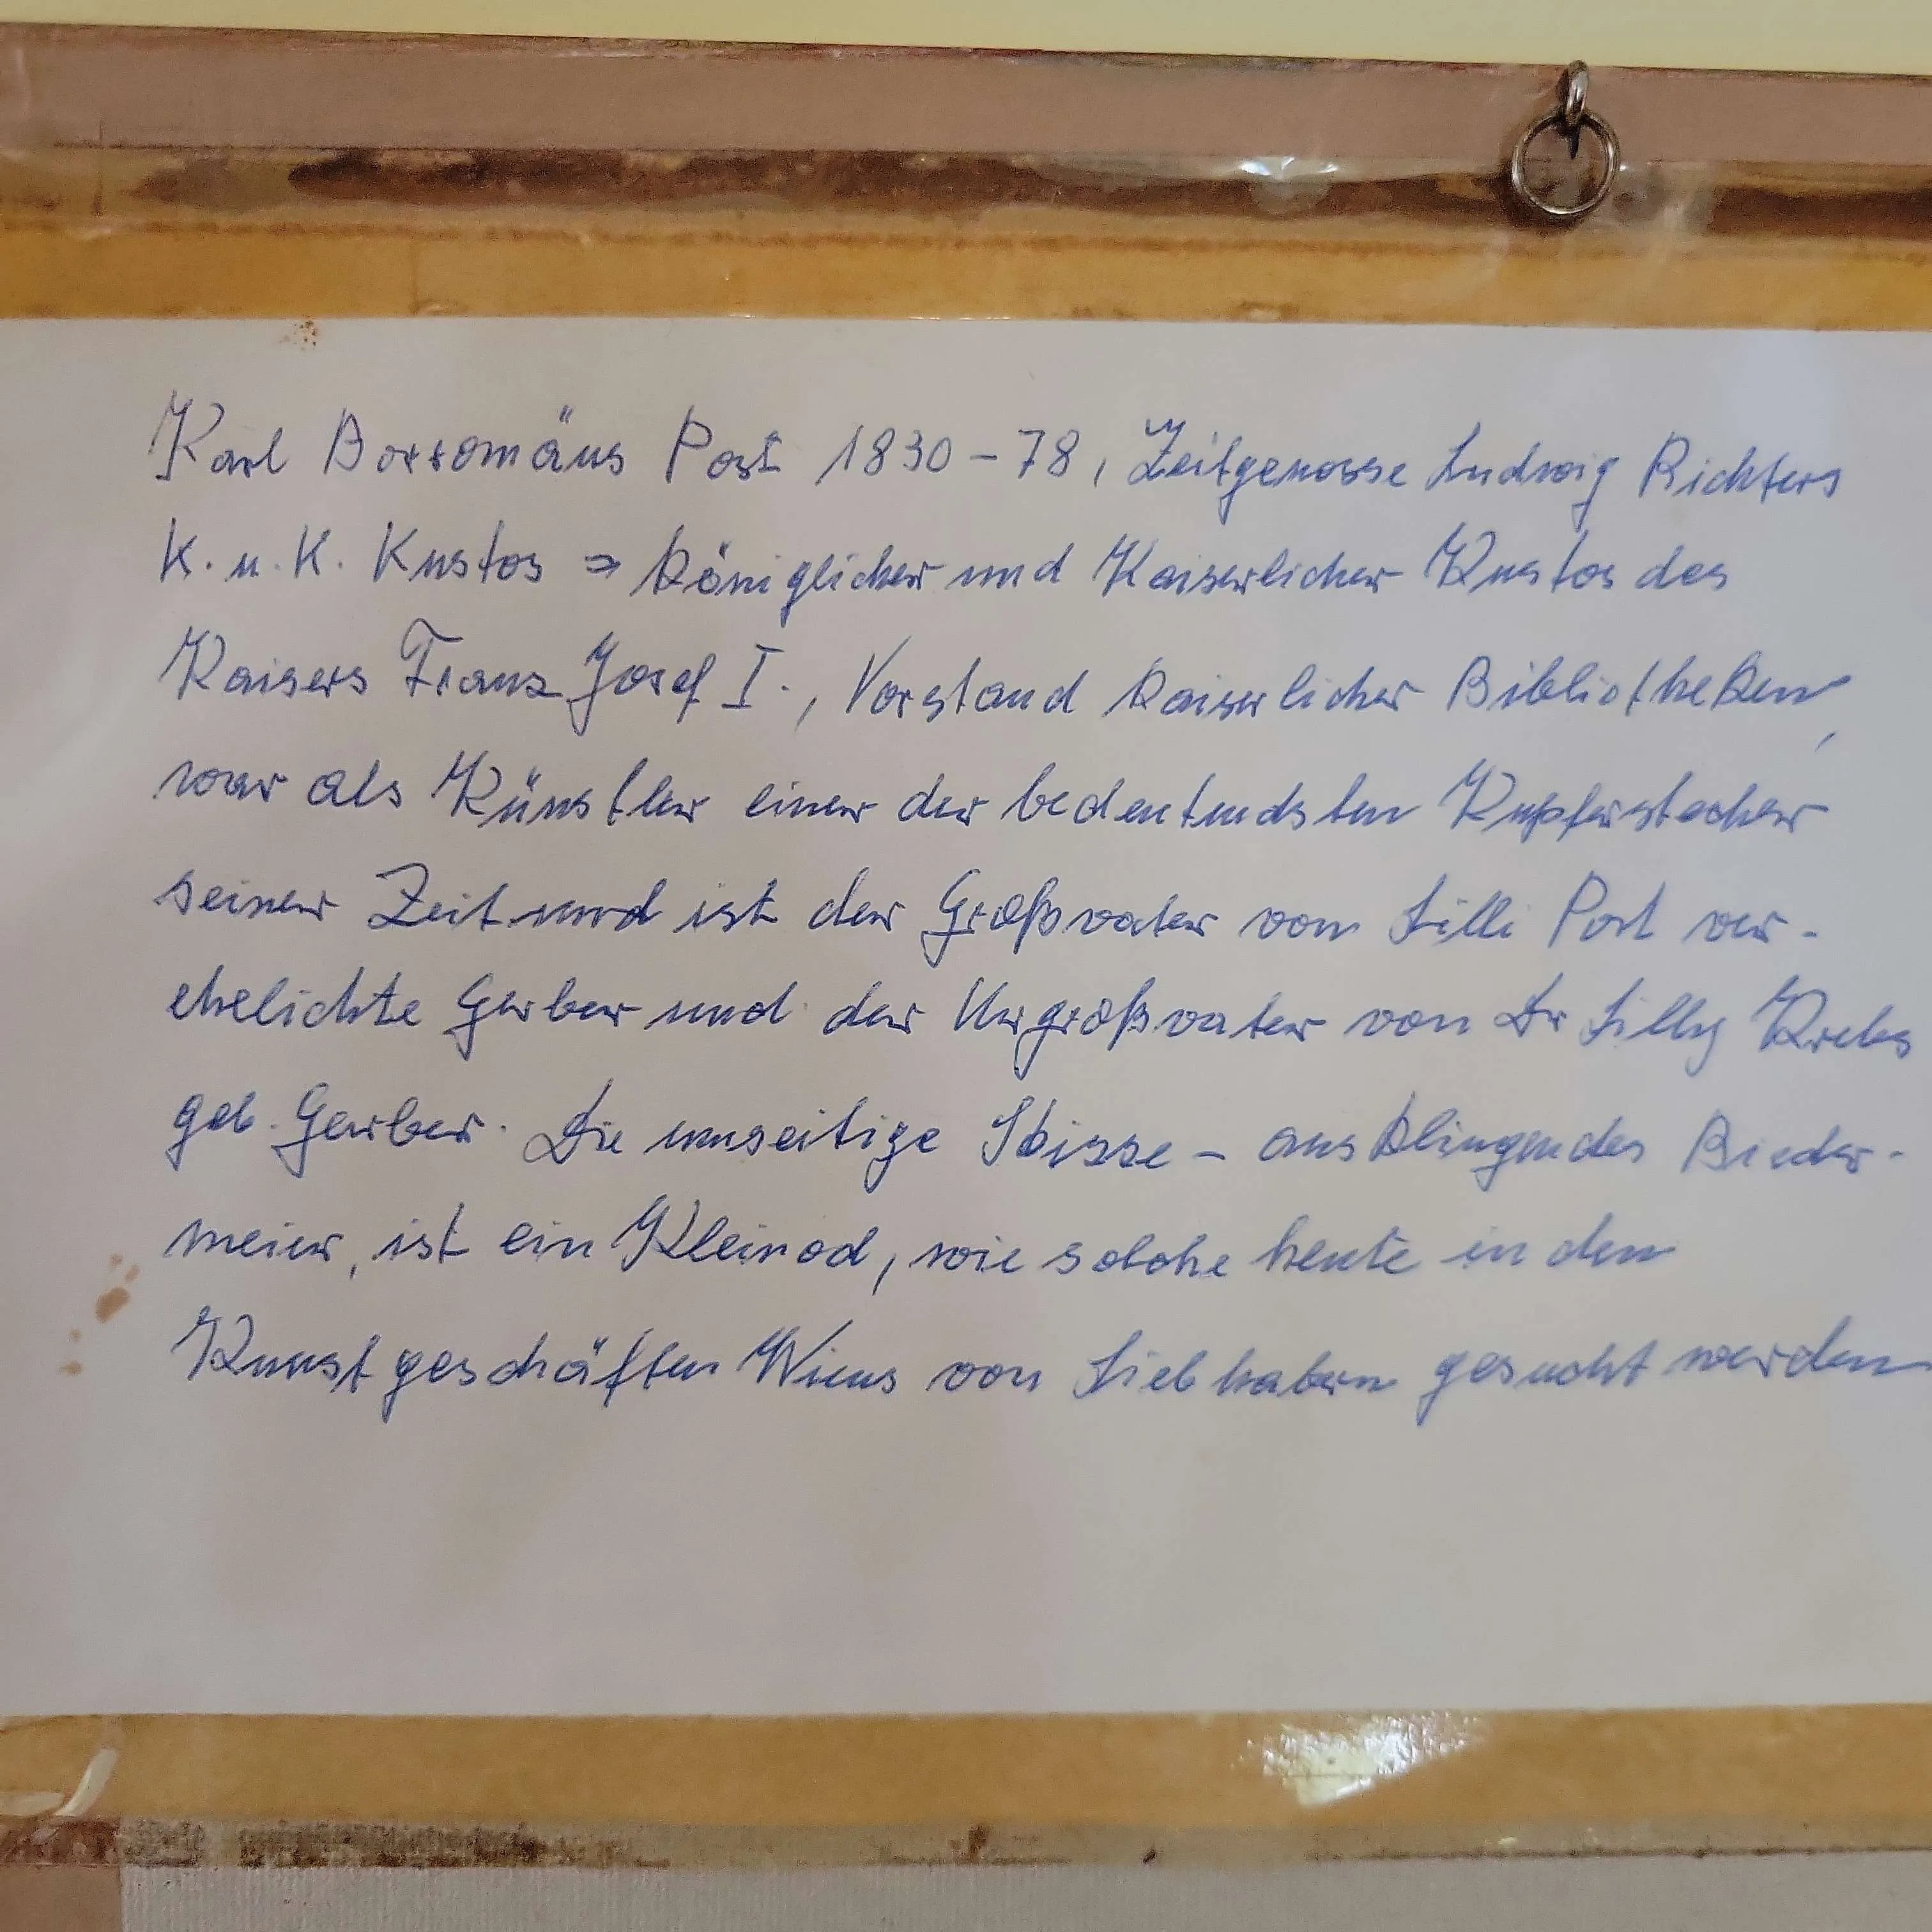 Karl Borromäus Post 1830 – 78, Zeitgenosse Ludwig Richters
K. u. K. Kustos => königlicher und Kaiserlicher Kustos des
Kaisers Franz Josef I., Vorstand kaiserlicher Bibliotheken,
war als Künstler einer der bedeutendsten Kupferstecher
seiner Zeit und ist der Großvater von Lilli Post ver-
ehelichte Gerber und der Urgroßvater von Dr Lilly Krebs
geb. Gerber. Die umseitige Skizze – ausklingendes Bieder-
meier, ist ein Kleinod, wie solche heute in den
Kunstgeschäften Wiens von Liebhabern gesucht werden